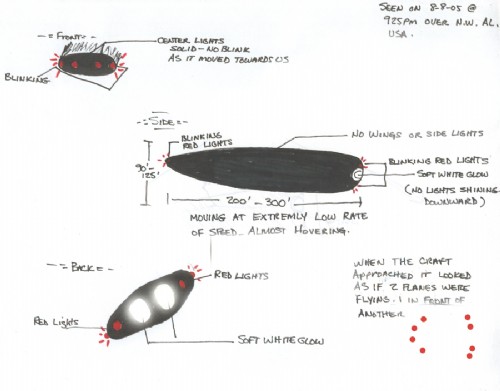 SEEN ON 8-8-05 @
925PM OVER N.W. AL.
USA.
-=FRONT=-
CENTER LIGHTS
SOLID-NO BLINK
AS IT MOVED TOWARDS US
BLINKING
-=SIDE=-
BLINKING
RED LIGHTS
NO WINGS OR SIDE LIGHTS
BLINKING RED LIGHTS
SOFT WHITE GLOW
(NO LIGHTS SHINING
DOWNWARD)
90'-
125'
200' - 300'
MOVING AT EXTREMLY LOW RATE
OF SPEED - ALMOST HOVERING.
-=BACK=-
RED LIGHTS
RED LIGHTS
SOFT WHITE GLOW
WHEN THE CRAFT
APPROACHED IT LOOKED
AS IF 2 PLANES WERE
FLYING. 1 IN FRONT OF
ANOTHER